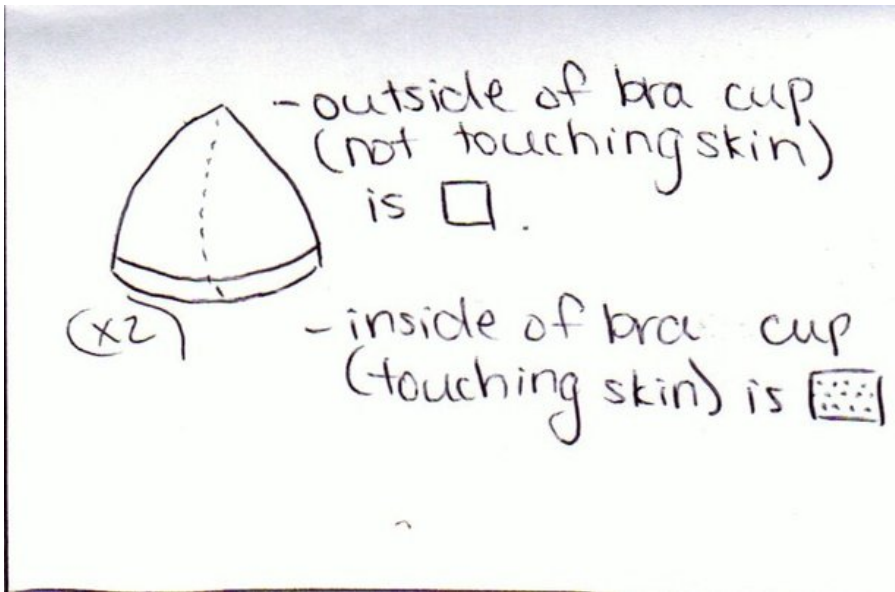 - outside of bra cup
(not touching skin)
is □.
(x2)
- inside of bra cup
(touching skin) is